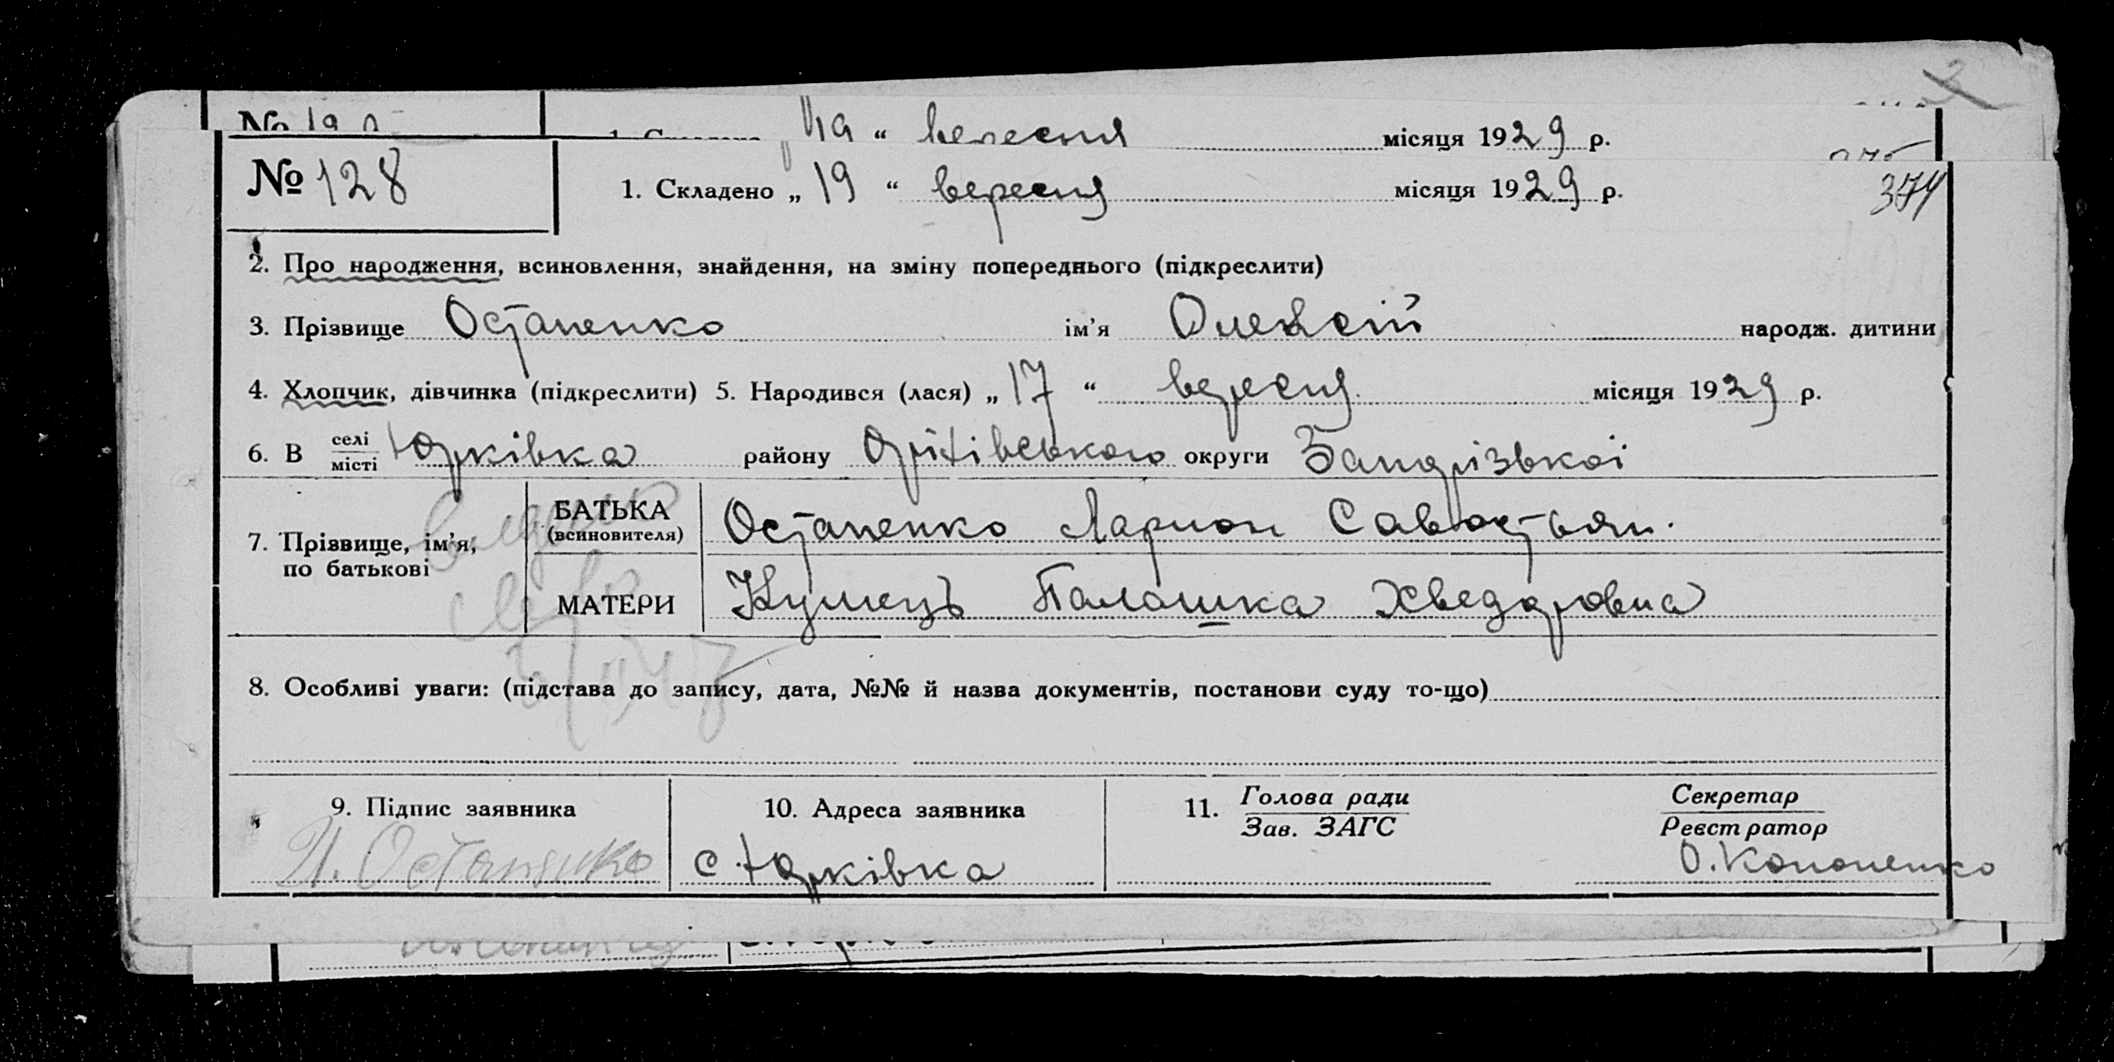 №
„19“ вересня місяця 1929 р.
№ 128 1. Складено „19“ вересня місяця 1929 р.
374
2. Про народження, всиновлення, знайдення, на зміну попереднього (підкреслити)
3. Прізвище Остапенко ім’я Олексій народж. дитини
4. Хлопчик, дівчинка (підкреслити) 5. Народився (лася) „17“ вересня місяця 1929 р.
6. В селі Юрківка району Оріхівського округи
місті
7. Прізвище, ім’я, по батькові
БАТЬКА (всиновителя) Остапенко Ларион Савостьян.
МАТЕРИ Палашка Хведоровна
8. Особливі уваги: (підстава до запису, дата, №№ й назва документів, постанови суду то-що)
9. Підпис заявника 10. Адреса заявника 11. Голова ради Секретар
Зав. ЗАГС Реєстратор
Остапенко с. Юрківка О. Кононенко